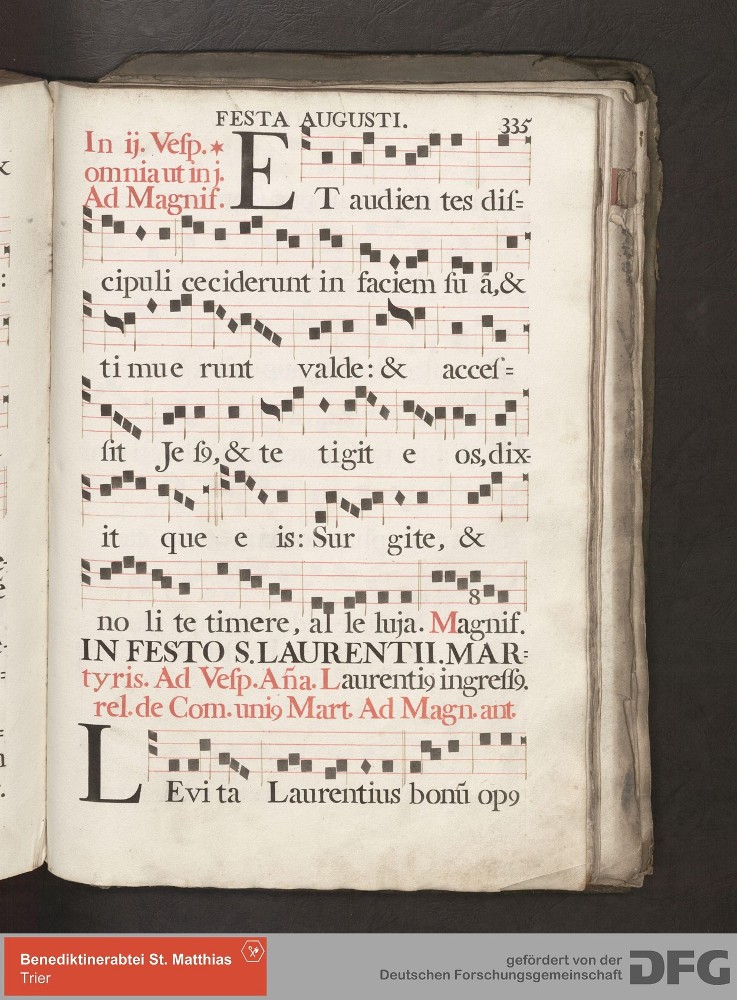 FESTA AUGUSTI. 335
In ij. Veſp.*
omnia ut in j.
Ad Magnif.
ET audien tes diſ=
cipuli ceciderunt in faciem ſu ā, &
ti mu e runt valde: & acceſ=
ſit Je ſꝰ, & te tigit e os, dix-
it que e is: Sur gite, &
no li te timere, al le luja. Magnif.
8
IN FESTO S. LAURENTII. MAR=
tyris. Ad Veſp. Aña. Laurentiꝰ ingreſſꝰ.
rel. de Com. uniꝰ Mart. Ad Magn. ant.
LEvi ta Laurentius bonū opꝰ
&
:
Benediktinerabtei St. Matthias
Trier
gefördert von der
Deutschen Forschungsgemeinschaft
DFG